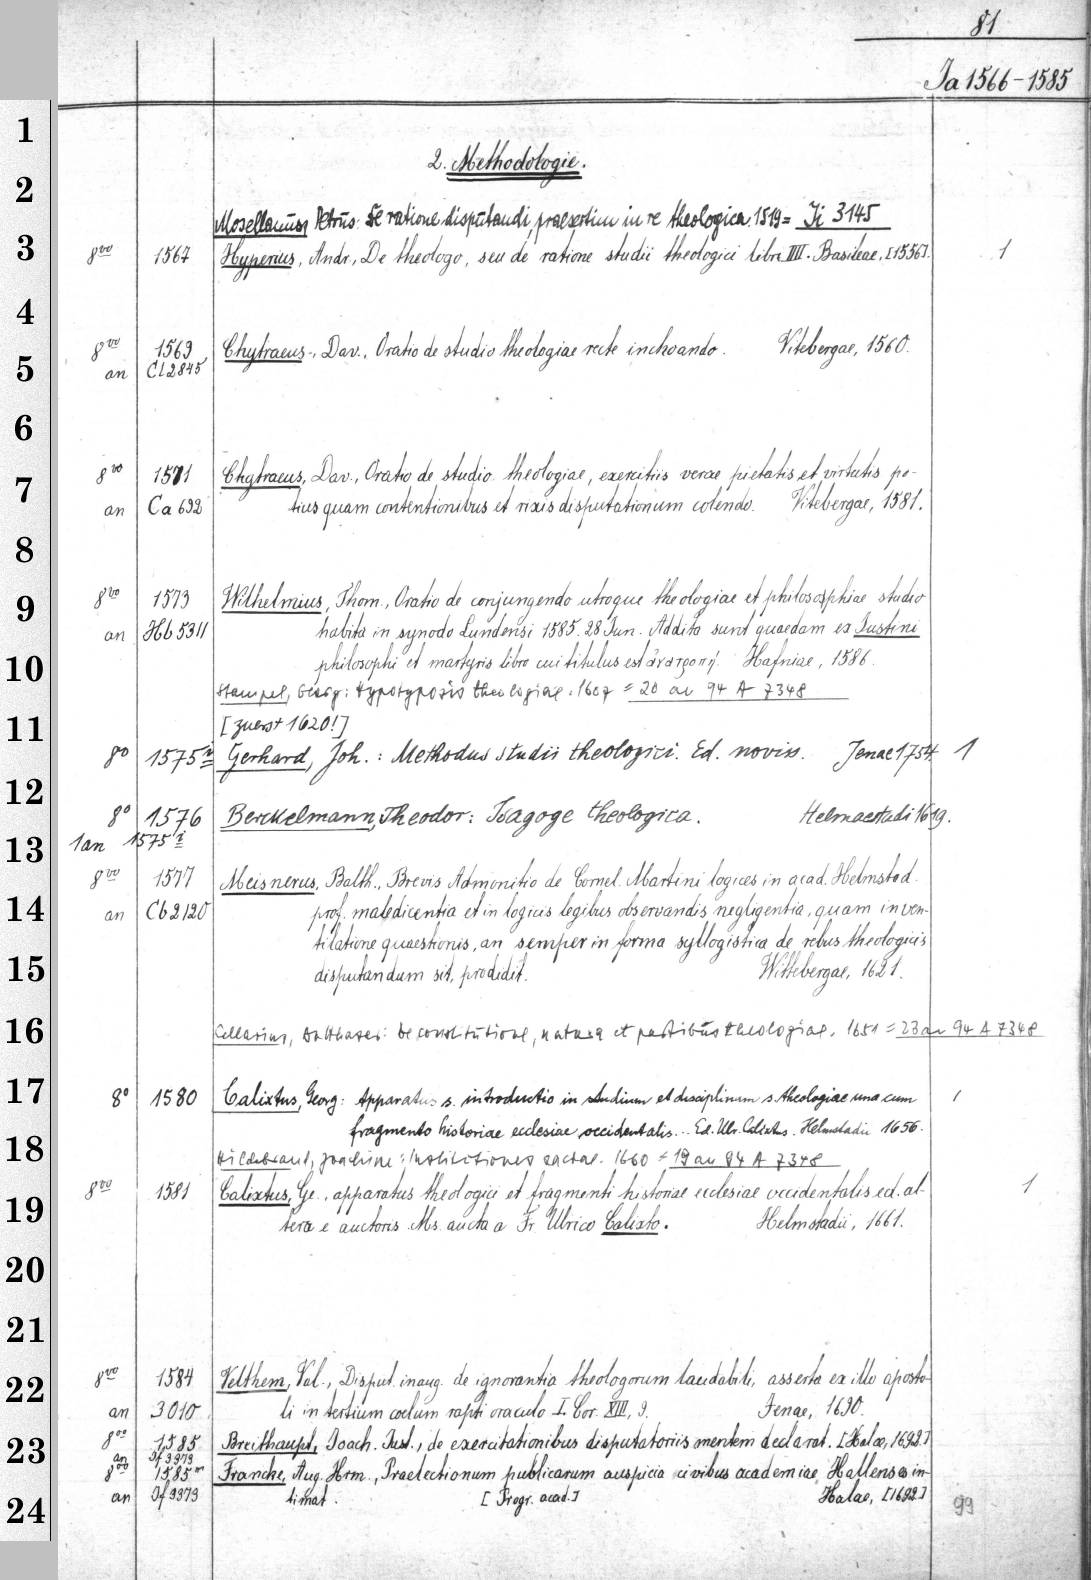 81
Ja 1566-1585
1
2. Methodologie.
2
Mosellanus, Petrus: De ratione disputandi, praesertim in re theologica. 1519 = Ji 3145
3
8vo 1567 Hyperius, Andr., De theologo, seu de ratione studii theologici libri IIII. Basileae, [1556]. 1
4
8vo 1569 Chytraeus, Dav., Oratio de studio theologiae recte inchoando. Vitebergae, 1560.
5
an Cl 2845
6
8vo 1571 Chytraeus, Dav., Oratio de studio theologiae, exercitiis verae pietatis et virtutis po-
7
an Ca 692 tius quam contentionibus et rixis disputationum colendo. Vitebergae, 1581.
8
8vo 1573 Wilhelmius, Thom., Oratio de conjungendo utroque theologiae et philosophiae studio
9
an Hb 5311 habita in synodo Lundensi 1585. 28 Jun. Addita sunt quaedam ex Justini
10
philosophi et martyris libro cui titulus est Hafniae, 1586.
Stampel, Georg: Hypotyposis theologiae. 1607 = 20 an 94 A 7348
11
[zuerst 1620!]
8o 1575n Gerhard, Joh.: Methodus studii theologici. Ed. noviss. Jenae 1754. 1
12
8o 1576 Berckelmann, Theodor: Isagoge theologica. Helmaestadi 1619.
13
1an 1575
8vo 1577 Meisnerus, Balth., Brevis Admonitio de Cornel. Martini logices in acad. Helmstad.
14
an Cb 2120 prof. maledicentia et in logicis legibus observandis negligentia, quam in ven-
tilatione quaestionis, an semper in forma syllogistica de rebus theologicis
15
disputandum sit, prodidit. Wittebergae, 1621.
16
Cellarius, Balthasar: De constitutione, natura et partibus theologiae. 1651 = 23 an 94 A 7348
17
8o 1580 Calixtus, Georg: Apparatus s. introductio in studium et disciplinam s. theologiae una cum
fragmento historiae ecclesiae occidentalis... Ed. Ulr. Calixtus. Helmstadii 1656. 1
18
Hildebrand, Joachim: Institutiones sacrae. 1660 = 19 an 94 A 7348
8vo 1581 Calixtus, Ge., apparatus theologici et fragmenti historiae ecclesiae occidentalis ed. al- 1
19
tera e auctoris Ms. aucta a Fr. Ulrico Calixto. Helmstadii, 1661.
20
21
8vo 1584 Velthem, Val., Disput. inaug. de ignorantia theologorum laudabili, asserta ex illo aposto-
22
an 3010 li in tertium coelum rapti oraculo I. Cor. XIII, 9. Jenae, 1690.
23
8vo 1585 Breithaupt, Joach. Just., de exercitationibus disputatoriis mentem declarat. [Halae, 1692.]
an Jf 3973
8vo 1585m Francke, Aug. Hrm., Praelectionum publicarum auspicia civibus academiae Hallensis in-
24
an Jf 3973 timat. [Progr. acad.] Halae, [1692.] 99